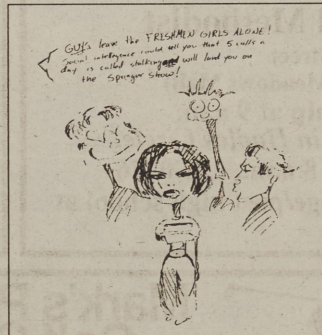 GUYS leave the FRESHMEN GIRLS ALONE!
Social intelligence could tell you that 5 calls a
day is called stalking and will land you on
the Springer Show!